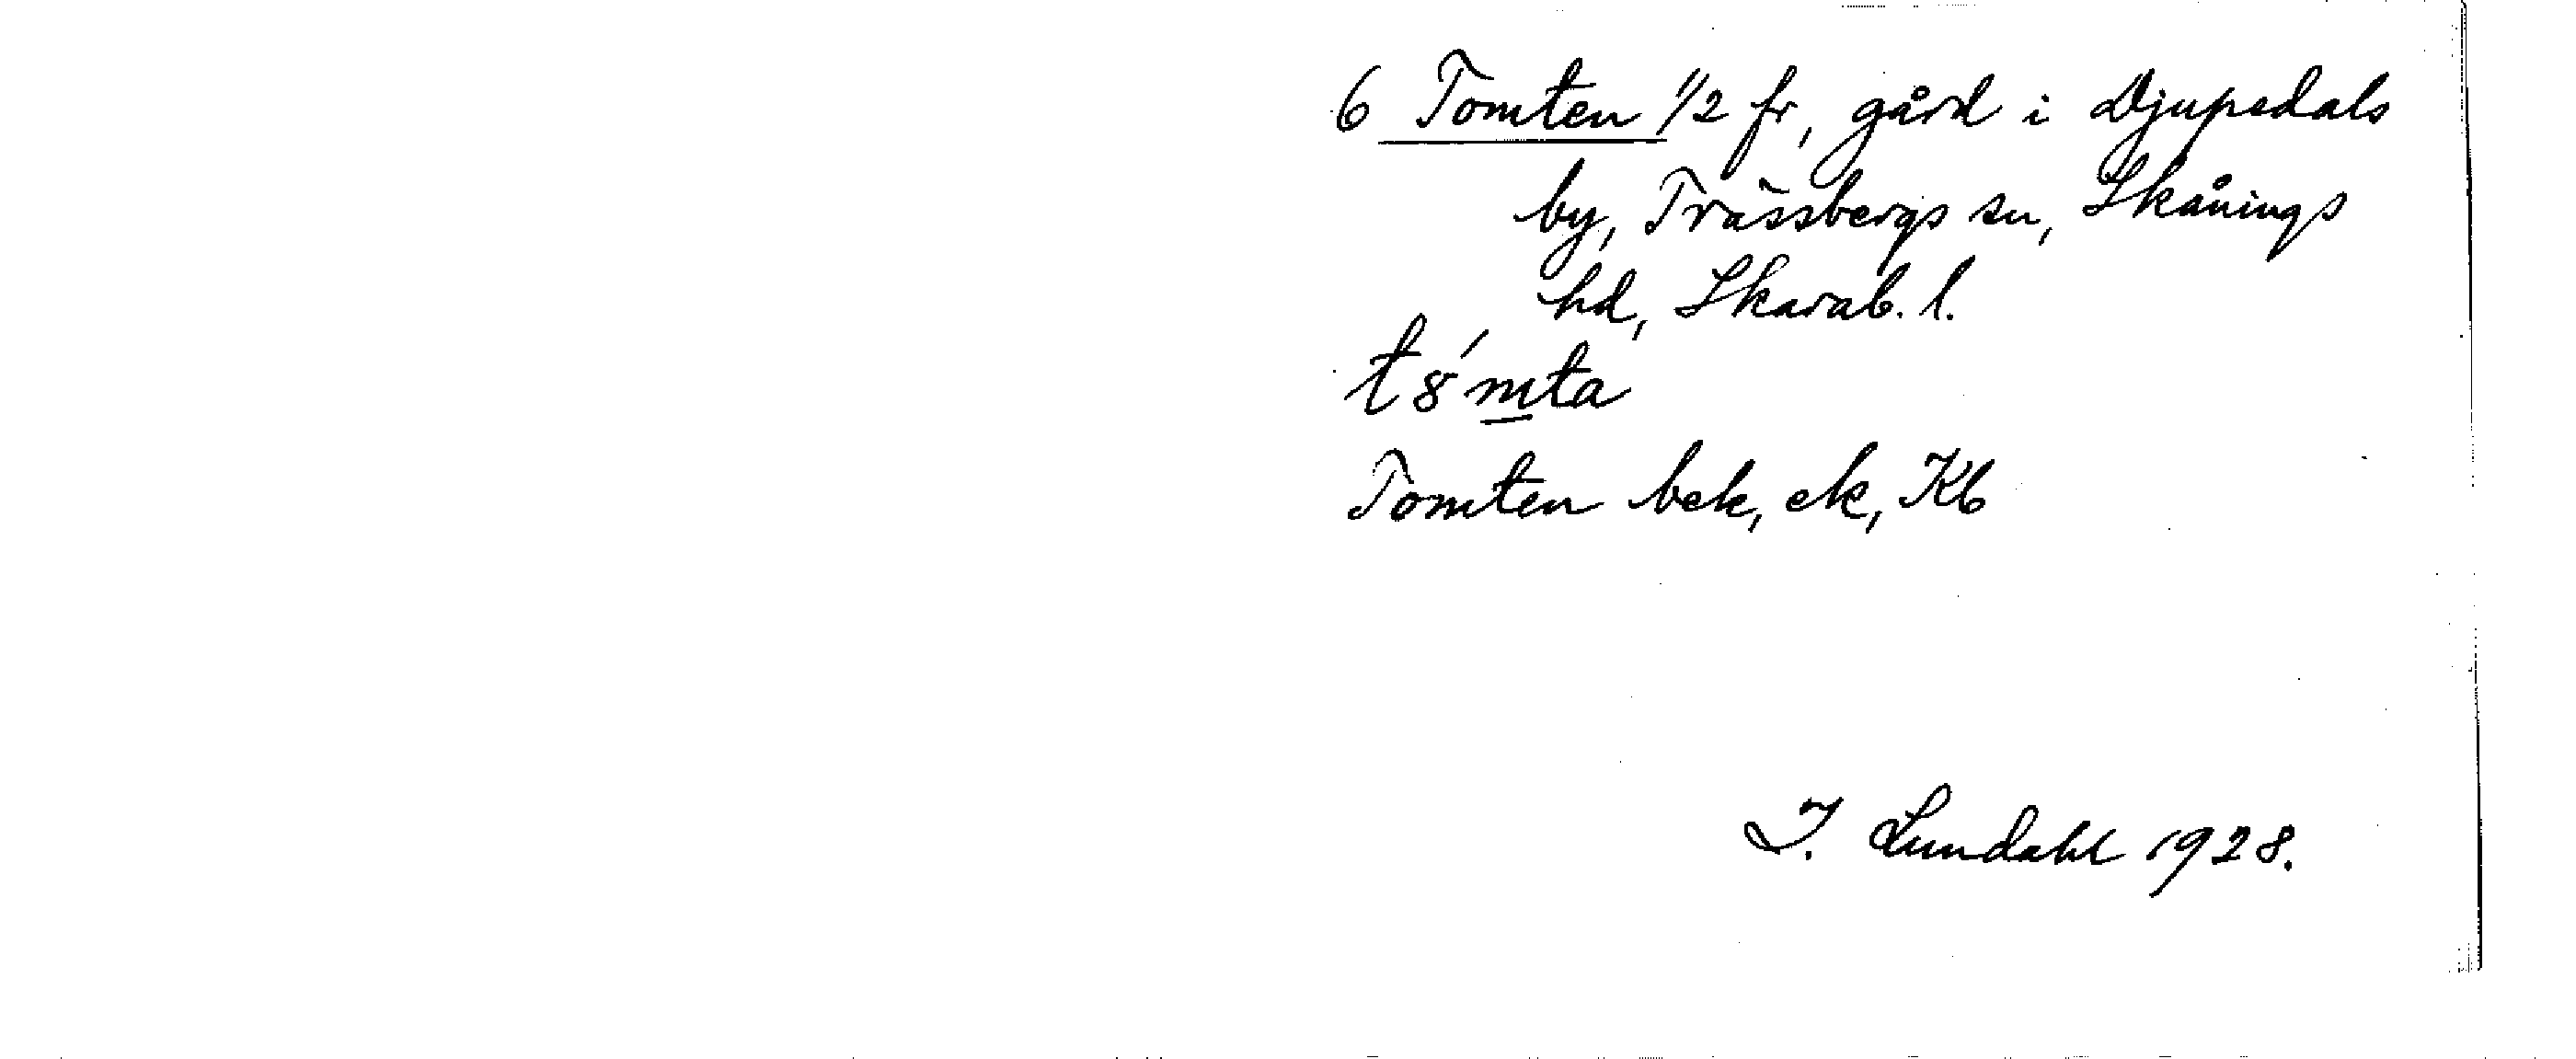 6 Tomten 1/2 fr, gård i Djupedals
by, Trässbergs sn, Skånings
hd, Skarab. l.
t8́mta
Tomten bek, ek, Kb
I. Lundahl 1928.